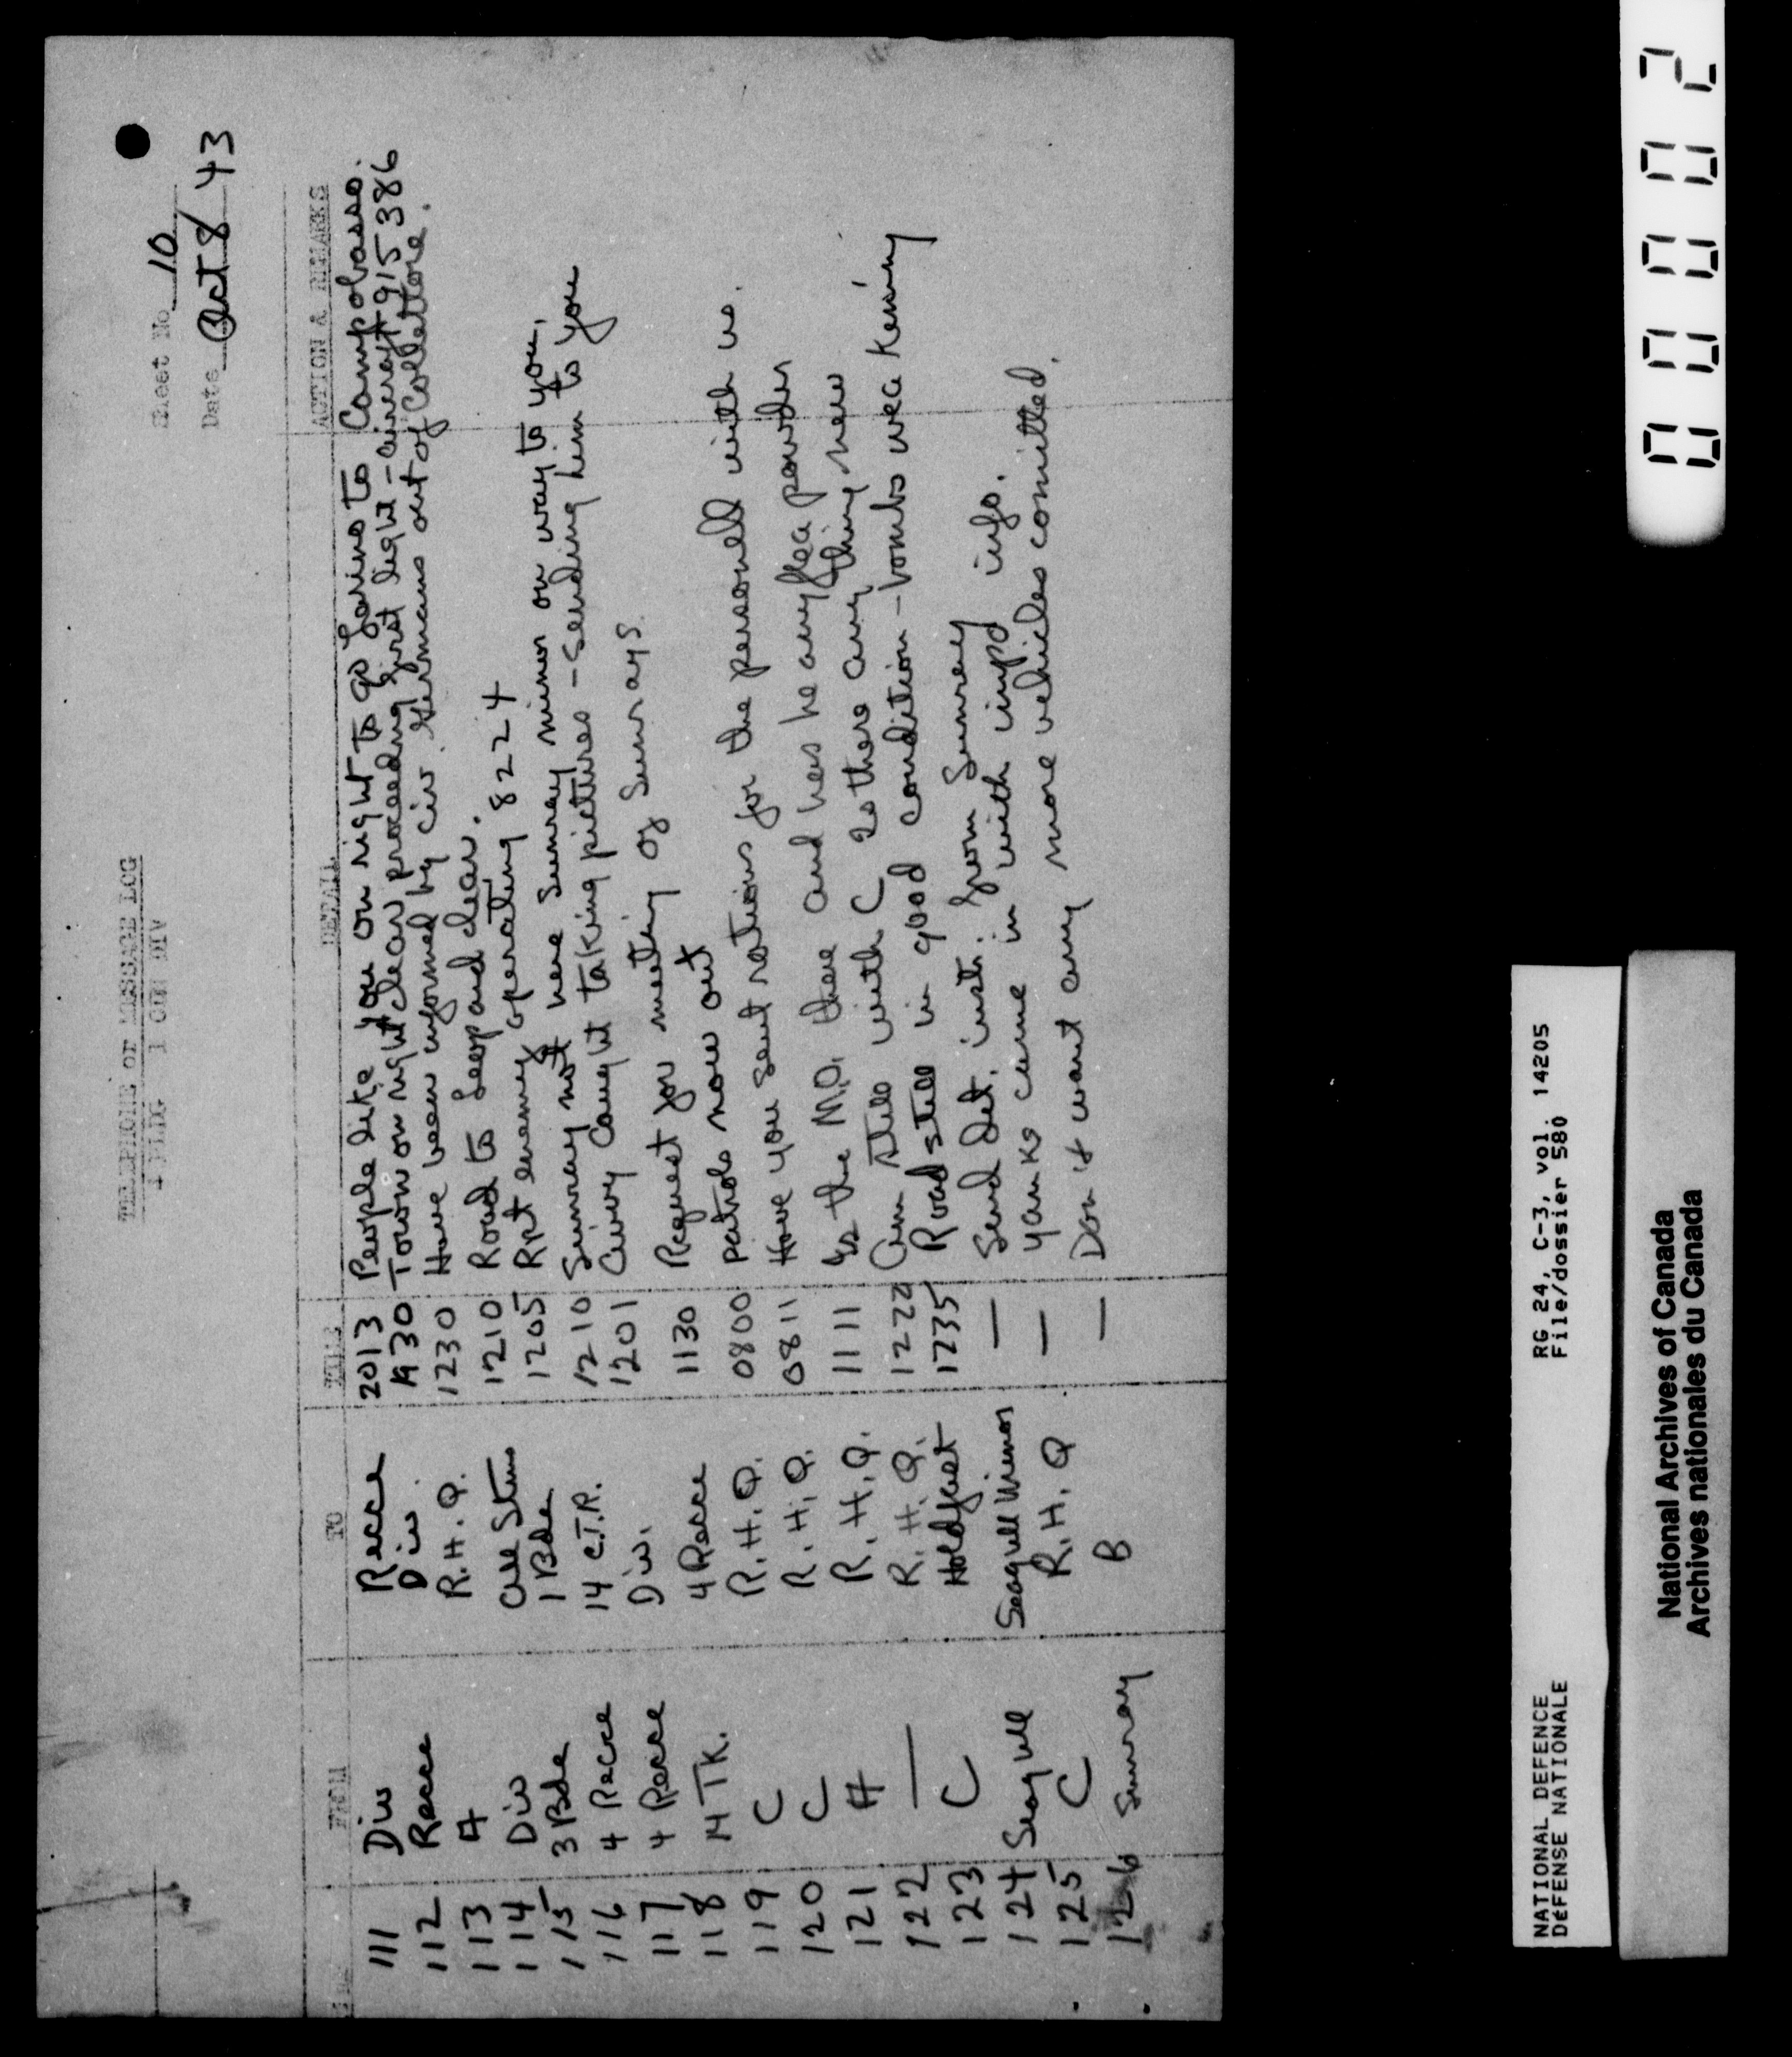 TELEPHONE or MESSAGE LOG
4 PLDG 1 CDN DIV
Sheet No 10
Date Oct 8/43
FROM TO TIME DETAIL ACTION & REMARKS
111 Div Recce 2013 People like you on right to go Larino to Campobasso.
112 Recce Div. 1930 Town on right clear proceeding first light - aircraft 915386
113 A R.H.Q. 1230 Have been informed by civ. Germans out of Colletore.
114 Div All Stns 1210 Road to Leep and clear.
115 3 Bde 1 Bde 1205 Rpt enemy operating 8224
116 4 Recce 14 C.T.R. 1210 Sunray not here Sunray minor on way to you.
117 4 Recce Div. 1201 Civvy caught taking pictures - sending him to you
118 14 TK. 4 Recce 1130 Request for meeting of Sunrays
119 C R.H.Q. 0800 patrols now out
120 C R.H.Q. 0811 Have you sent rations for the personell with us.
121 H R.H.Q. 1111 Is the M.O. there and has he any flea powder
122 — R.H.Q. 1222 Am still with C Is there any thing new
123 C Holdfast 1235 Road still in good condition - bombs were
124 Seagull Seagull Minor — Send Det. instr. from Sunray
125 C R.H.Q — Yanks came in with impd info.
126 Sunray B — Don't want any more vehicles comitted.
00002
NATIONAL DEFENCE
DÉFENSE NATIONALE
RG 24, C-3, vol. 14205
File/dossier 580
National Archives of Canada
Archives nationales du Canada